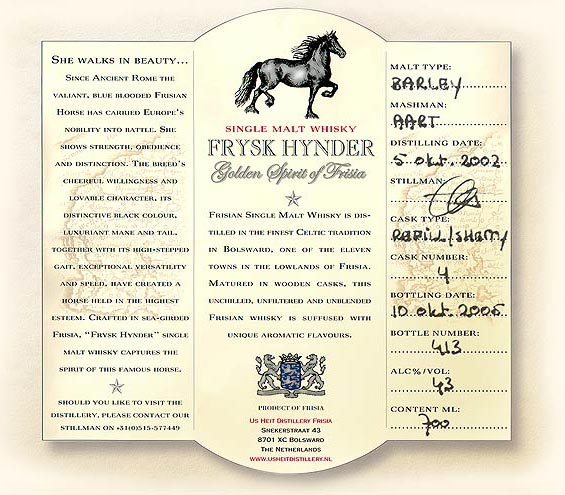 She walks in beauty...
Since Ancient Rome the
valiant, blue blooded Frisian
Horse has carried Europe's
nobility into battle. She
shows strength, obedience
and distinction. The breed's
cheerful willingness and
lovable character, its
distinctive black colour,
luxuriant mane and tail,
together with its high-stepped
gait, exceptional versatility
and speed, have created a
horse held in the highest
esteem. Crafted in sea-girded
Frisia, "Frysk Hynder" single
malt whisky captures the
spirit of this famous horse.
should you like to visit the
distillery, please contact our
stillman on +31(0)515-577449
SINGLE MALT WHISKY
FRYSK HYNDER
Golden Spirit of Frisia
Frisian Single Malt Whisky is dis-
tilled in the finest Celtic tradition
in Bolsward, one of the eleven
towns in the lowlands of Frisia.
Matured in wooden casks, this
unchilled, unfiltered and unblended
Frisian whisky is suffused with
unique aromatic flavours.
PRODUCT OF FRISIA
Us Heit Distillery Frisia
Snekerstraat 43
8701 XC Bolsward
The Netherlands
www.usheitdistillery.nl
MALT TYPE:
BARLEY
MASHMAN:
AART
DISTILLING DATE:
5 okt. 2002
STILLMAN:
CASK TYPE:
REFILL/SHERRY
CASK NUMBER:
4
BOTTLING DATE:
10 okt 2005
BOTTLE NUMBER:
413
ALC%/VOL:
43
CONTENT ML:
700